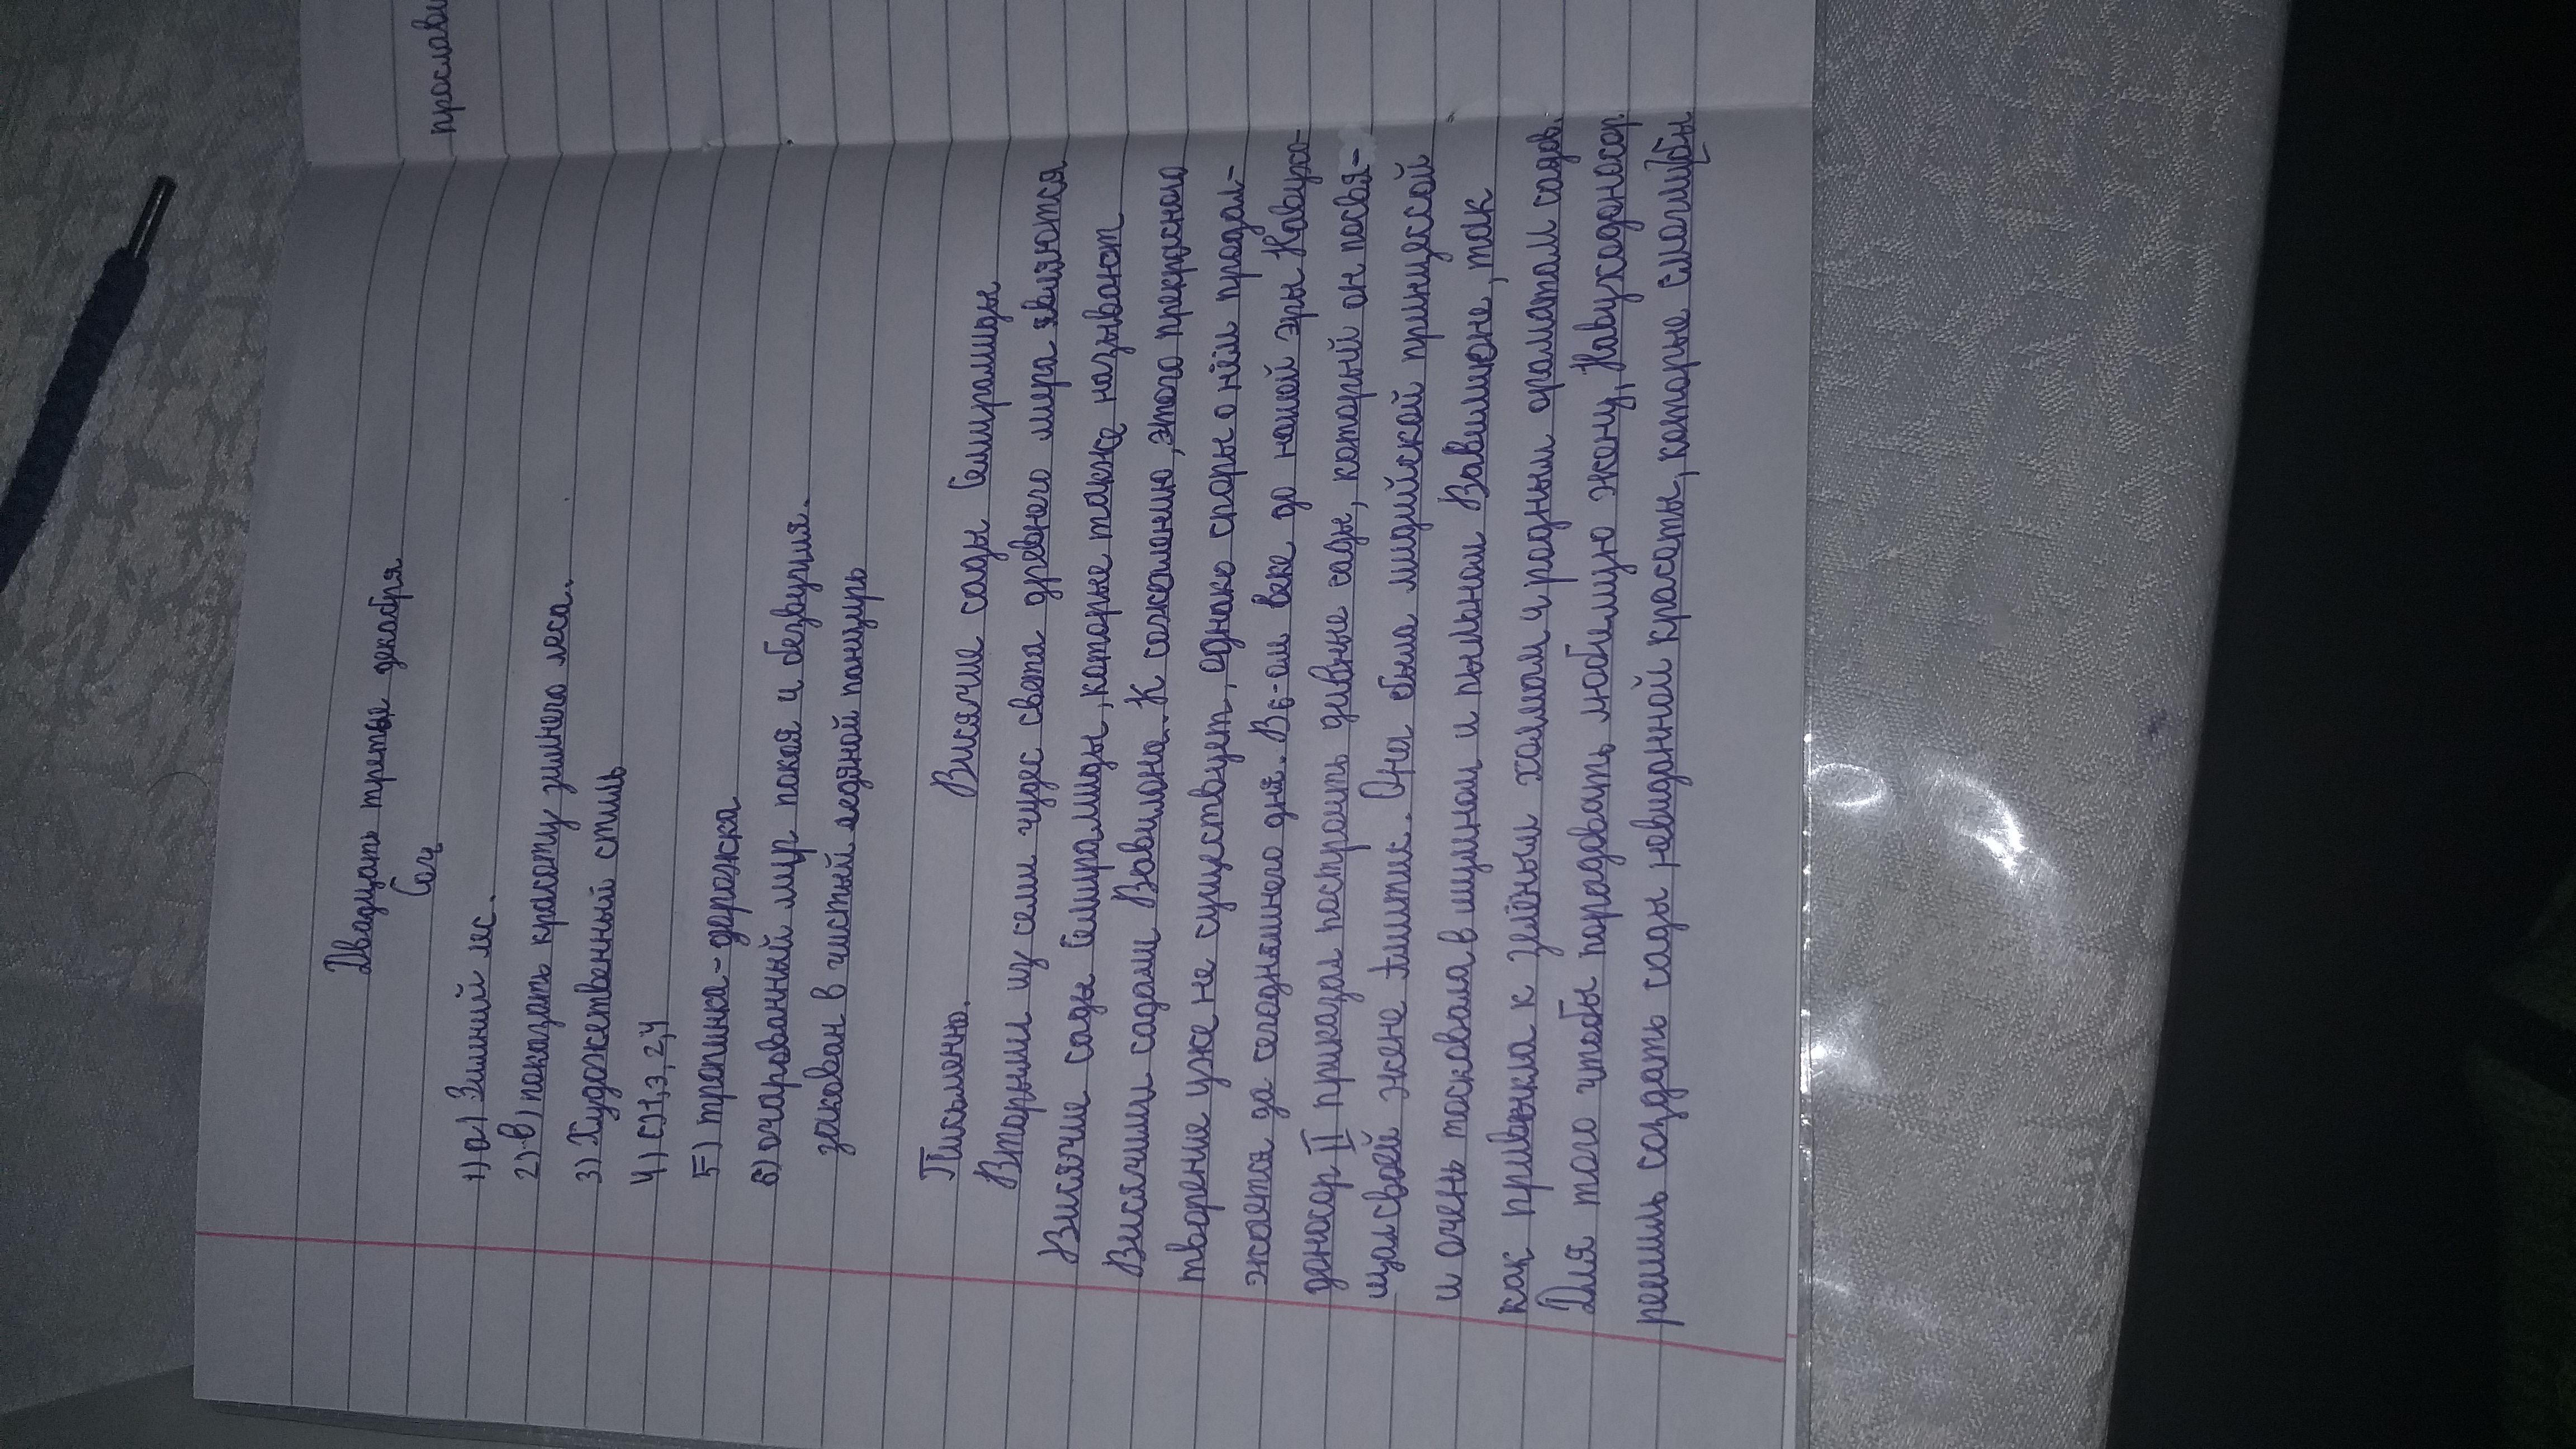 Двадцать третье декабря
Соч
1) а) Зимний лес.
2) в) показать красоту зимнего леса.
3) Художественный стиль
4) с) 1, 3, 2, 4
5) тропинка - дорожка
6) очарованный мир покоя и беззвучия.
закован в чистый ледяной панцирь
Письменно. Висячие сады Семирамиды
Вторыми из семи чудес света древнего мира являются
Висячие сады Семирамиды, которые также называют
Висячими садами Вавилона. К сожалению, этого прекрасного
творение уже не существует, однако споры о нём продол-
жается до сегодняшнего дня. В 6-ом веке до нашей эры Навухо-
доносор II приказал построить дивные сады, который он посвя-
щал своей жене Амитис. Она была мидийской принцессой
и очень тосковала в шумном и пыльном Вавилоне, так
как привыкла к зелёным холмам и родным ароматам садов.
Для того чтобы порадовать любимую жену, Навуходоносор
решил создать сады невиданной красоты, которые смогли бы
прослави